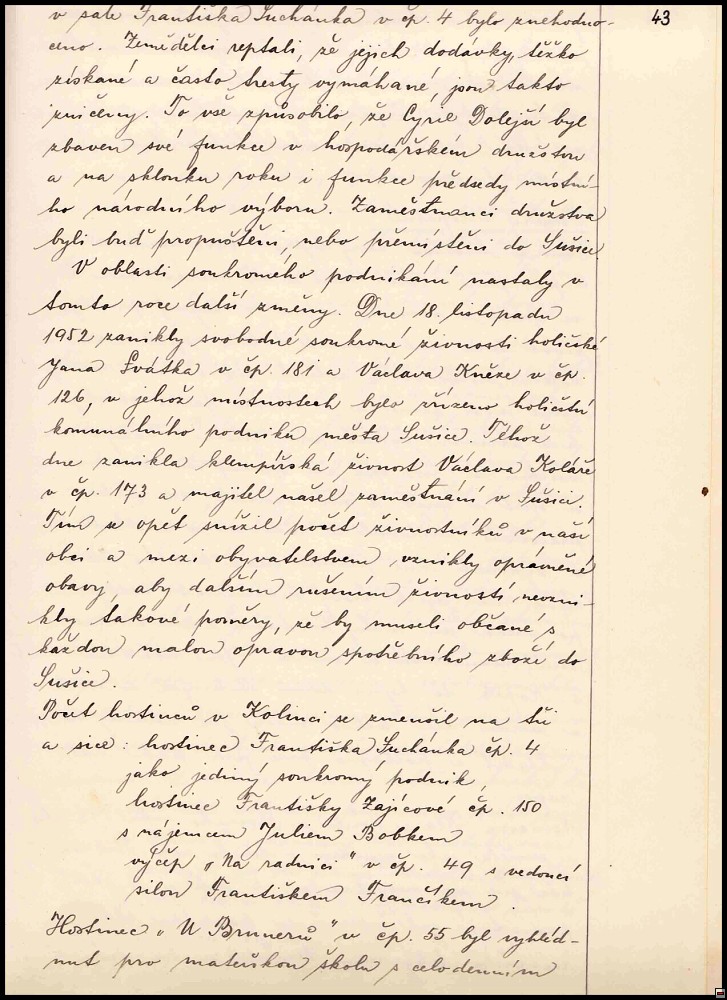 43
v sale Františka Suchánka v čp. 4 bylo znehodno-
ceno. Zemědělci reptali, že jejich dodávky, těžko
získané a často tresty vymáhané, jsou takto
zničeny. To vše způsobilo, že Cyril Dolejší byl
zbaven své funkce v hospodářském družstvu
a na sklonku roku i funkce předsedy místní-
ho národního výboru. Zaměstnanci družstva
byli buď propuštěni, nebo přemístěni do Sušice.
V oblasti soukromého podnikání nastaly v
tomto roce další změny. Dne 18. listopadu
1952 zanikly svobodné soukromé živnosti holičské
Jana Svátka v čp. 181 a Václava Kněze v čp.
126, v jehož místnostech bylo zřízeno holičství
komunálního podniku města Sušice. Téhož
dne zanikla klempířská živnost Václava Koláře
v čp. 173 a majitel našel zaměstnání v Sušici.
Tím se opět snížil počet živnostníků v naší
obci a mezi obyvatelstvem vznikly oprávněné
obavy, aby dalším rušením živností nevzni-
kly takové poměry, že by museli občané s
každou malou opravou spotřebního zboží do
Sušice.
Počet hostinců v Kolinci se zmenšil na tři
a sice: hostinec Františka Suchánka čp. 4
jako jediný soukromý podnik,
hostinec Františky Zajícové čp. 150
s nájemcem Juliem Bobkem
výčep „Na radnici" v čp. 49 s vedoucí
silou Františkem Frančíkem.
Hostinec „U Brunerů" v čp. 55 byl vyhléd-
nut pro mateřskou školu s celodenním